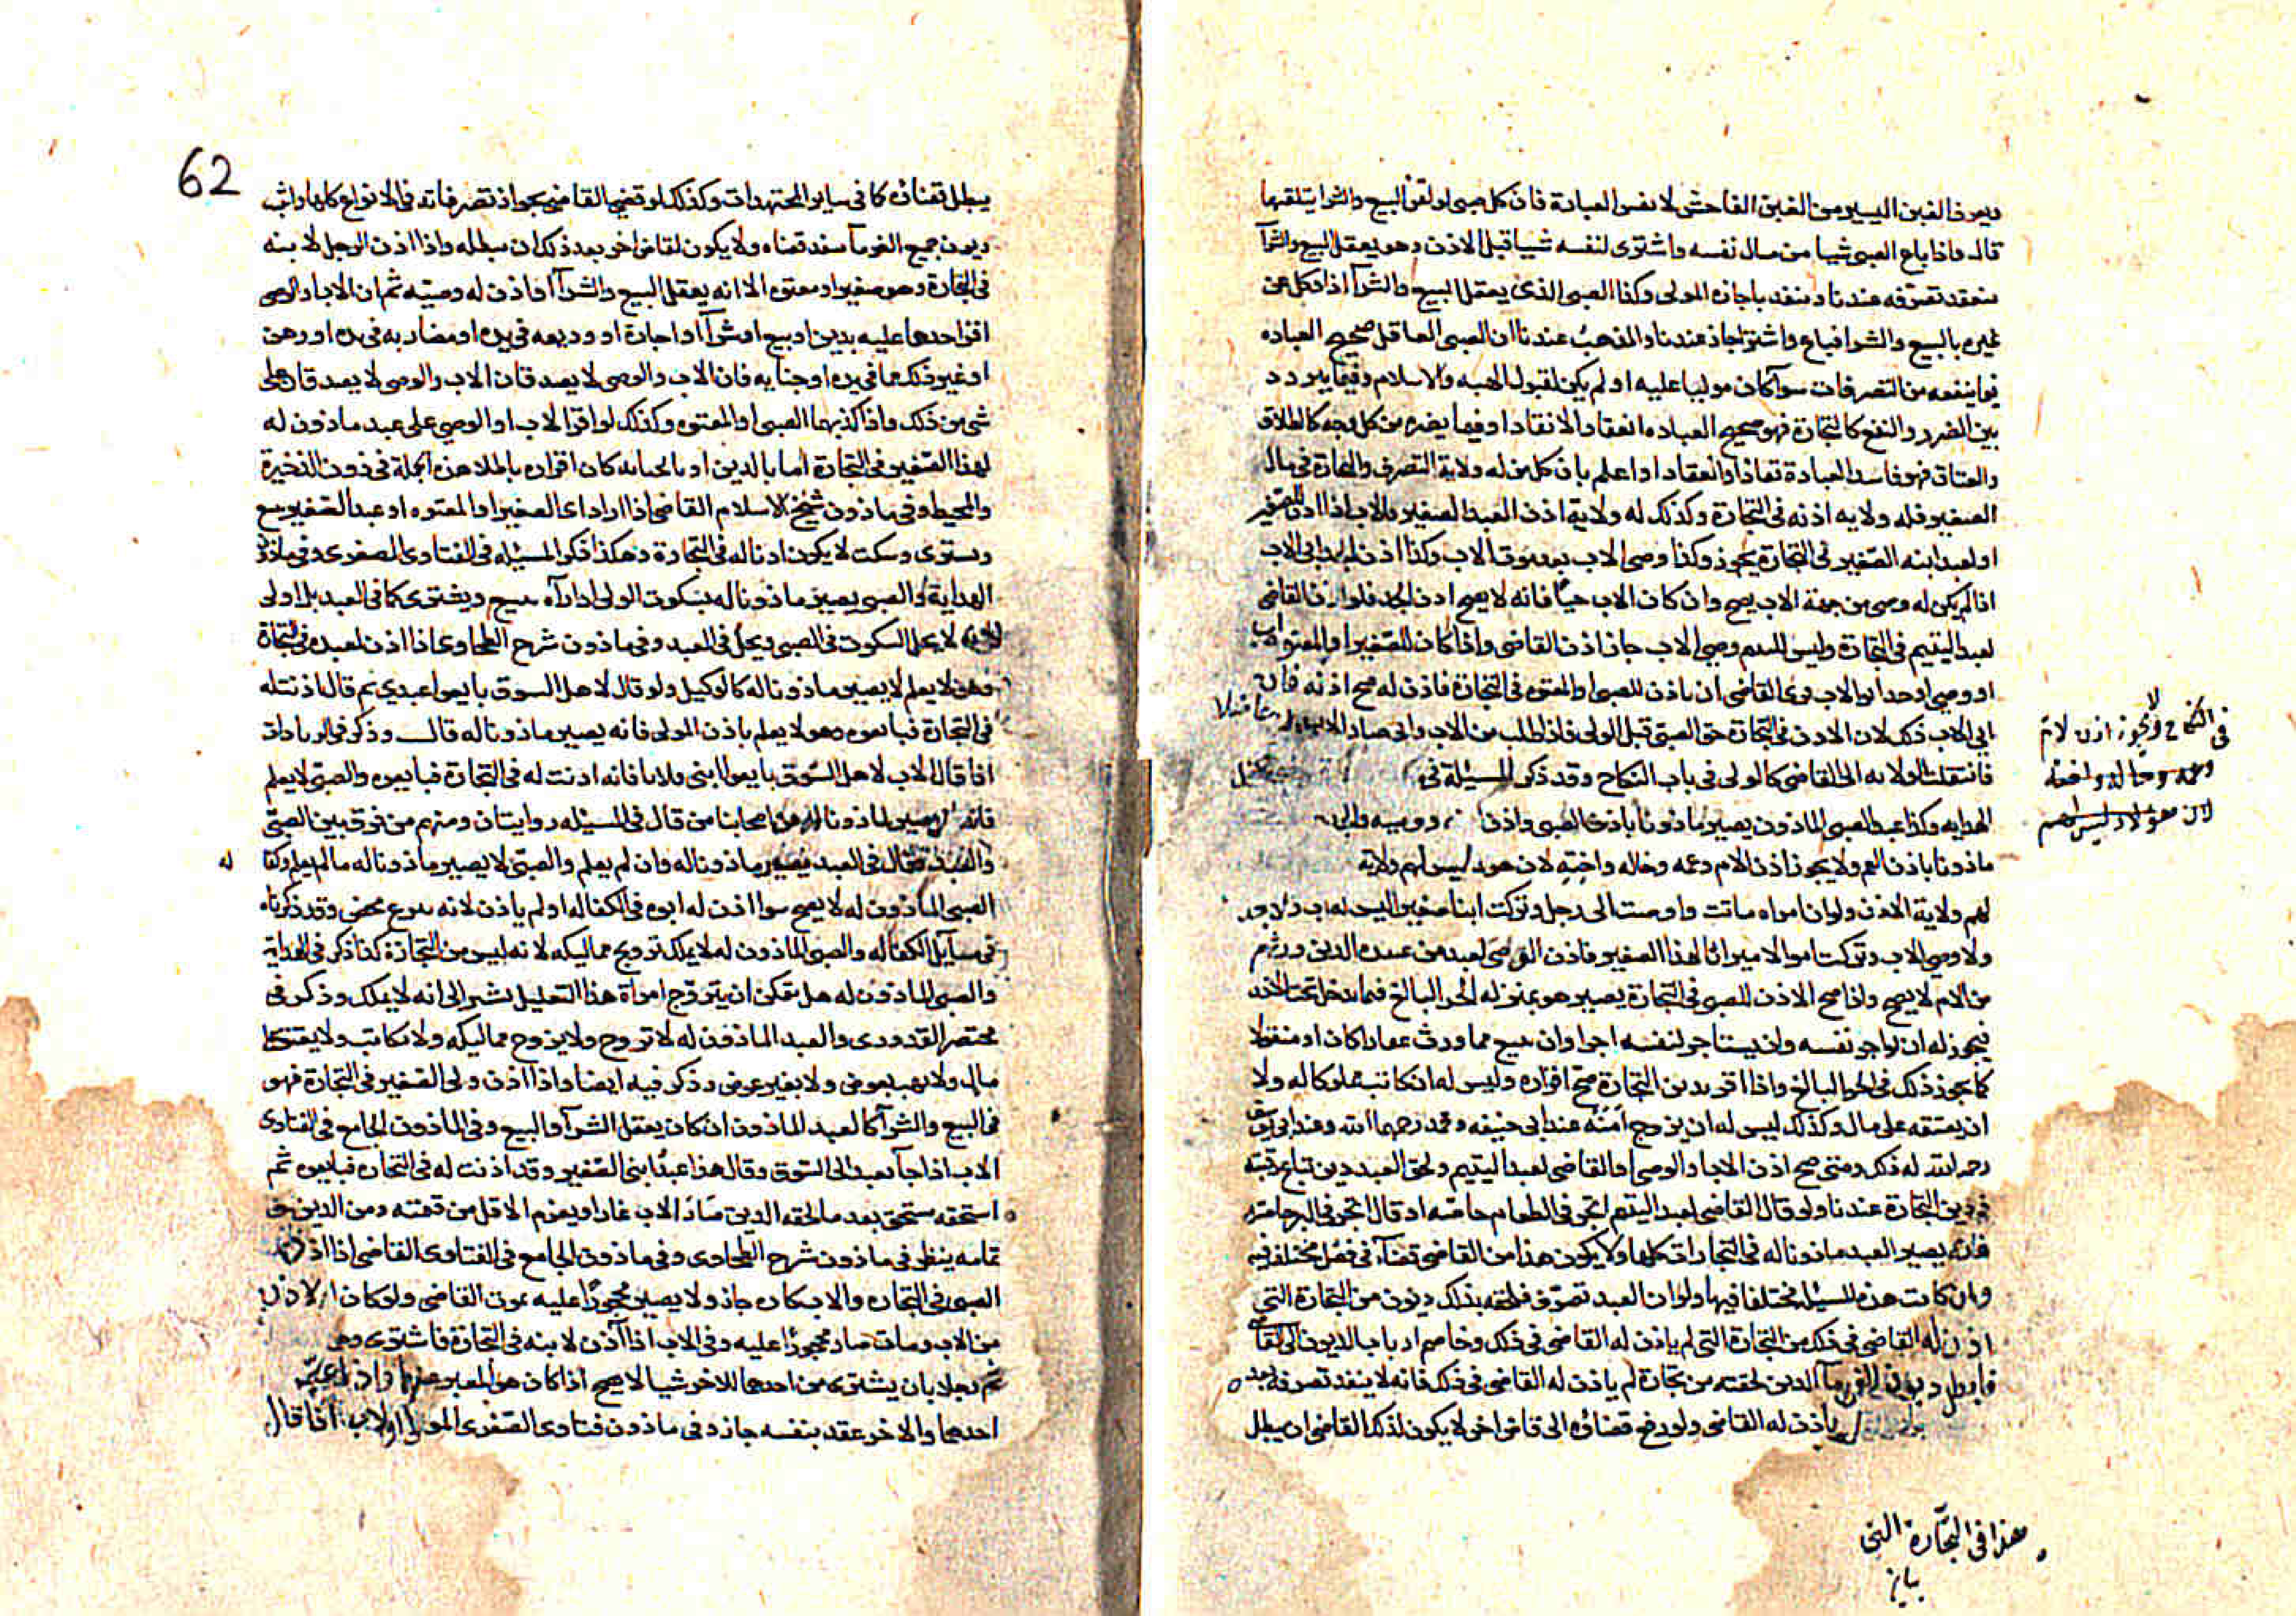 ويعرف الغبن اليسير من الغبن الفاحش لا نفس العبادة فان كل صبى لو لقن البيع والشرا يتلقنها
قال واذا باع الصبى شيا من مال نفسه واشترى لنفسه شييا قبل الاذن وهو يعقل البيع والشرآ
ينعقد تصرفه عندنا وينفد باجازه المولى وكذا الصبى الذى يعقل البيع والشرآ اذا وكل عن
غيره بالبيع والشرا فباع واشترى جاز عندنا والمذهب عندنا ان الصبى العاقل صحيح العباره
فيما ينفعه من التصرفات سوآ كان موليا عليه او لم يكن لقبول الهبه والاسلام وفيما يتردد
بين الضرر والنفع كالتجارة فهو صحيح العباره انعقادا لا نفاذا وفيما يضره من كل وجه كالطلاق
والعتاق فهو فاسد العبارة نفاذا وانعقادا واعلم بان كل من له ولاية التصرف والتجارة فى مال
الصغير فله ولايه اذنه فى التجارة وكذلك له ولاية اذن العبد الصغير والاب اذا اذن للصغير
او لعبد ابنه الصغير فى التجارة يجوز وكذا وصى الاب بعد موت الاب وكذا اذن الجد ابى الاب
اذا لم يكن له وصى من جهة الاب يصح وان كان الاب حيًا فانه لا يصح اذن الجد فلو اذن القاضى
لعبد اليتيم فى التجارة وليس لليتيم وصى الاب جاز اذن القاضى واذا كان للصغير او المعتوه اب
او وصى او جد ابو الاب فراى القاضى ان ياذن للصبى او المعتوه فى التجارة فاذن له صح اذنه فان
ابى الاب ذلك لان الاذن فى التجارة حق الصبى قبل الولى فاذا طلب من الاب وابى صار الاب عاضلا
فانتقلت الولايه الى القاضى كالولى فى باب النكاح وقد ذكر المسيلة فى
الهدايه وكذا عبد الصبى الماذون يصير ماذونا باذن الصبى واذن
ماذونا باذن العم ولا يجوز اذن الام وعمه وخاله واخته لان هولا ليس لهم ولاية
لهم ولاية الاذن ولو ان امراه ماتت واوصت الى رجل وتركت ابنا صغيرا ليس له اب ولا جد
ولا وصى الاب وتركت اموالا ميراثا لهذا الصغير فاذن القاضى لعبد من عبيده الذين ورثهم
من الام لا يصح واذا صح الاذن للصبى فى التجارة يصير هو بمنزله الحر البالغ فيما يدخل تحت الاذن
فيجوز له ان يواجر نفسه وان يستاجر لنفسه اجرا وان يبيع مما ورث عقارا كان او منقولا
كما يجوز ذلك فى الحر البالغ واذا اقر بدين التجارة صح اقراره وليس له ان يكاتب مملوكا له ولا
ان يعتقه على مال وكذلك ليس له ان يزوج امته عند ابى حنيفه ومحمد رحمهما الله وعند ابى يوسف
رحمه الله له ذلك ومتى صح اذن الاب او الوصى او القاضى لعبد اليتيم ولحق العبد دين تباع رقبته
فى دين التجارة عندنا ولو قال القاضى لعبد اليتيم اتجر فى الطعام خاصه او قال اتجر فى البر خاصة
فانه يصير العبد ماذونا له فى التجارات كلها ولا يكون هذا من القاضى قضآء فى فصل مختلف فيه
وان كانت هذه المسيلة مختلفا فيها ولو ان العبد تصرف فلحقه بذلك ديون من التجارة التى
اذن له القاضى فى ذلك من التجارة التى لم ياذن له القاضى فى ذلك وخاصم ارباب الديون الى القاضى
فابطل ديون الغرمآ الذين لحقته من تجارة لم ياذن له القاضى فى ذلك فانه لا ينفد تصرفه بعد
ياذن له القاضى ولو رفع قضاؤه الى قاض اخر لا يكون لذلك القاضى ان يبطل
فى النكاح ولا يجوز اذن لام
وعمه وخاله واخته
لان هولاء ليس لهم
هذا فى التجارة التى
62
يبطل قضاه كما فى ساير المجتهدات وكذلك لو قضى القاضى بجواز تصرفاته فى الانواع كلها واثبت
ديون جميع الغرمآ ينفد قضاه ولا يكون لقاض اخر بعد ذلك ان يبطله واذا اذن الرجل لابنه
فى التجارة وهو صغير او معتوه الا انه يعقل البيع والشرآ او اذن له وصيه ثم ان الاب او الوصى
اقر احدهما عليه بدين او بيع او شرآ او اجارة او وديعه فى يده او مضاربه فى يده او رهن
او غير ذلك مما فى يده او جنايه فان الاب والوصى لا يصدقان الاب والوصى لا يصدقان على
شى من ذلك واذا كذبهما الصبى او المعتوه وكذلك لو اقر الاب او الوصى على عبد ماذون له
لهذا الصغير فى التجارة اما بالدين او بالجنايه كان اقراره باطلا هذه الجملة فى ذون الذخيرة
والمحيط وفى ماذون شيخ الاسلام القاضى اذا اراد اى الصغير او المعتوه او عبد الصغير يبيع
ويسترى وسكت لا يكون اذنا له فى التجارة وهكذا ذكر المسيله فى الفتاوى الصغرى وفى ماذون
الهداية والصبى يصير ماذونا له بسكوت الولى اذا رآه يبيع ويشترى كما فى العبد بل اولى
لانه لا يحل السكوت فى الصبى ويحل فى العبد وفى ماذون شرح الطحاوى اذا اذن لعبده فى التجاة
وهو لا يعلم لا يصير ماذونا له كالوكيل ولو قال لاهل السوق بايعوا عبدي ثم قال اذنت له
فى التجارة فبايعوه وهو لا يعلم باذن المولى فانه يصير ماذونا له قال وذكر فى الزيادات
اذا قال الاب لاهل السوق بايعوا ابنى فلانا فانه اذنت له فى التجارة فبايعوه والصبى لا يعلم
فانه لا يصير ماذونا له من اصحابنا من قال فى المسيله روايتان ومنهم من فرق بين الصبى
والعبد فقال فى العبد يصير ماذونا له وان لم يعلم والصبى لا يصير ماذونا له ما لم يعلم وكفا له
الصبى الماذون له لا يصح سوا اذن له ابوه فى الكفاله او لم ياذن لانه تبرع محض وقد ذكرناه
فى مسايل الكفاله والصبى الماذون له لا يملك تزويج مماليكه لانه ليس من التجارة كذا ذكر فى الهداية
والصبى الماذون له هل يمكن ان يتزوج امراة هذا التعليل يشير الى انه لا يملك وذكر فى
مختصر القدورى والعبد الماذون له لا يتزوج ولا يزوج مماليكه ولا يكاتب ولا يعتق على
مال ولا يهب بعوض ولا بغير عوض وذكر فيه ايضا واذا اذن ولى الصغير فى التجارة فهو
فى البيع والشرآ كالعبد الماذون ان كان يعقل الشرآ والبيع وفى الماذون الجامع فى الفتاوى
الاب اذا جآ بعبد الى السوق وقال هذا عبد ابنى الصغير وقد اذنت له فى التجاره فبايعوه ثم
استحقه مستحق بعد ما لحقه الدين صار الاب غارا ويغرم الاقل من قيمته ومن الدين
تمامه ينظر فى ماذون شرح الطحاوى وفى ماذون الجامع فى الفتاوى القاضى اذا اذن
الصبى فى التجاره والاب كاره جاز ولا يصير محجورا عليه بموت القاضى ولو كان الاذن
من الاب ومات صار محجورا عليه وفى الاب اذا آذن لابنه فى التجارة فاشترى وهى
ثم رجلا بان يشترى من احدهما للاخر شيا لا يصح اذا كان هو المعبر عنهما واذا عبر
احدهما والاخر عقد بنفسه جاز وفى ماذون فتاوى الصغرى المولى او الاب اذا قال